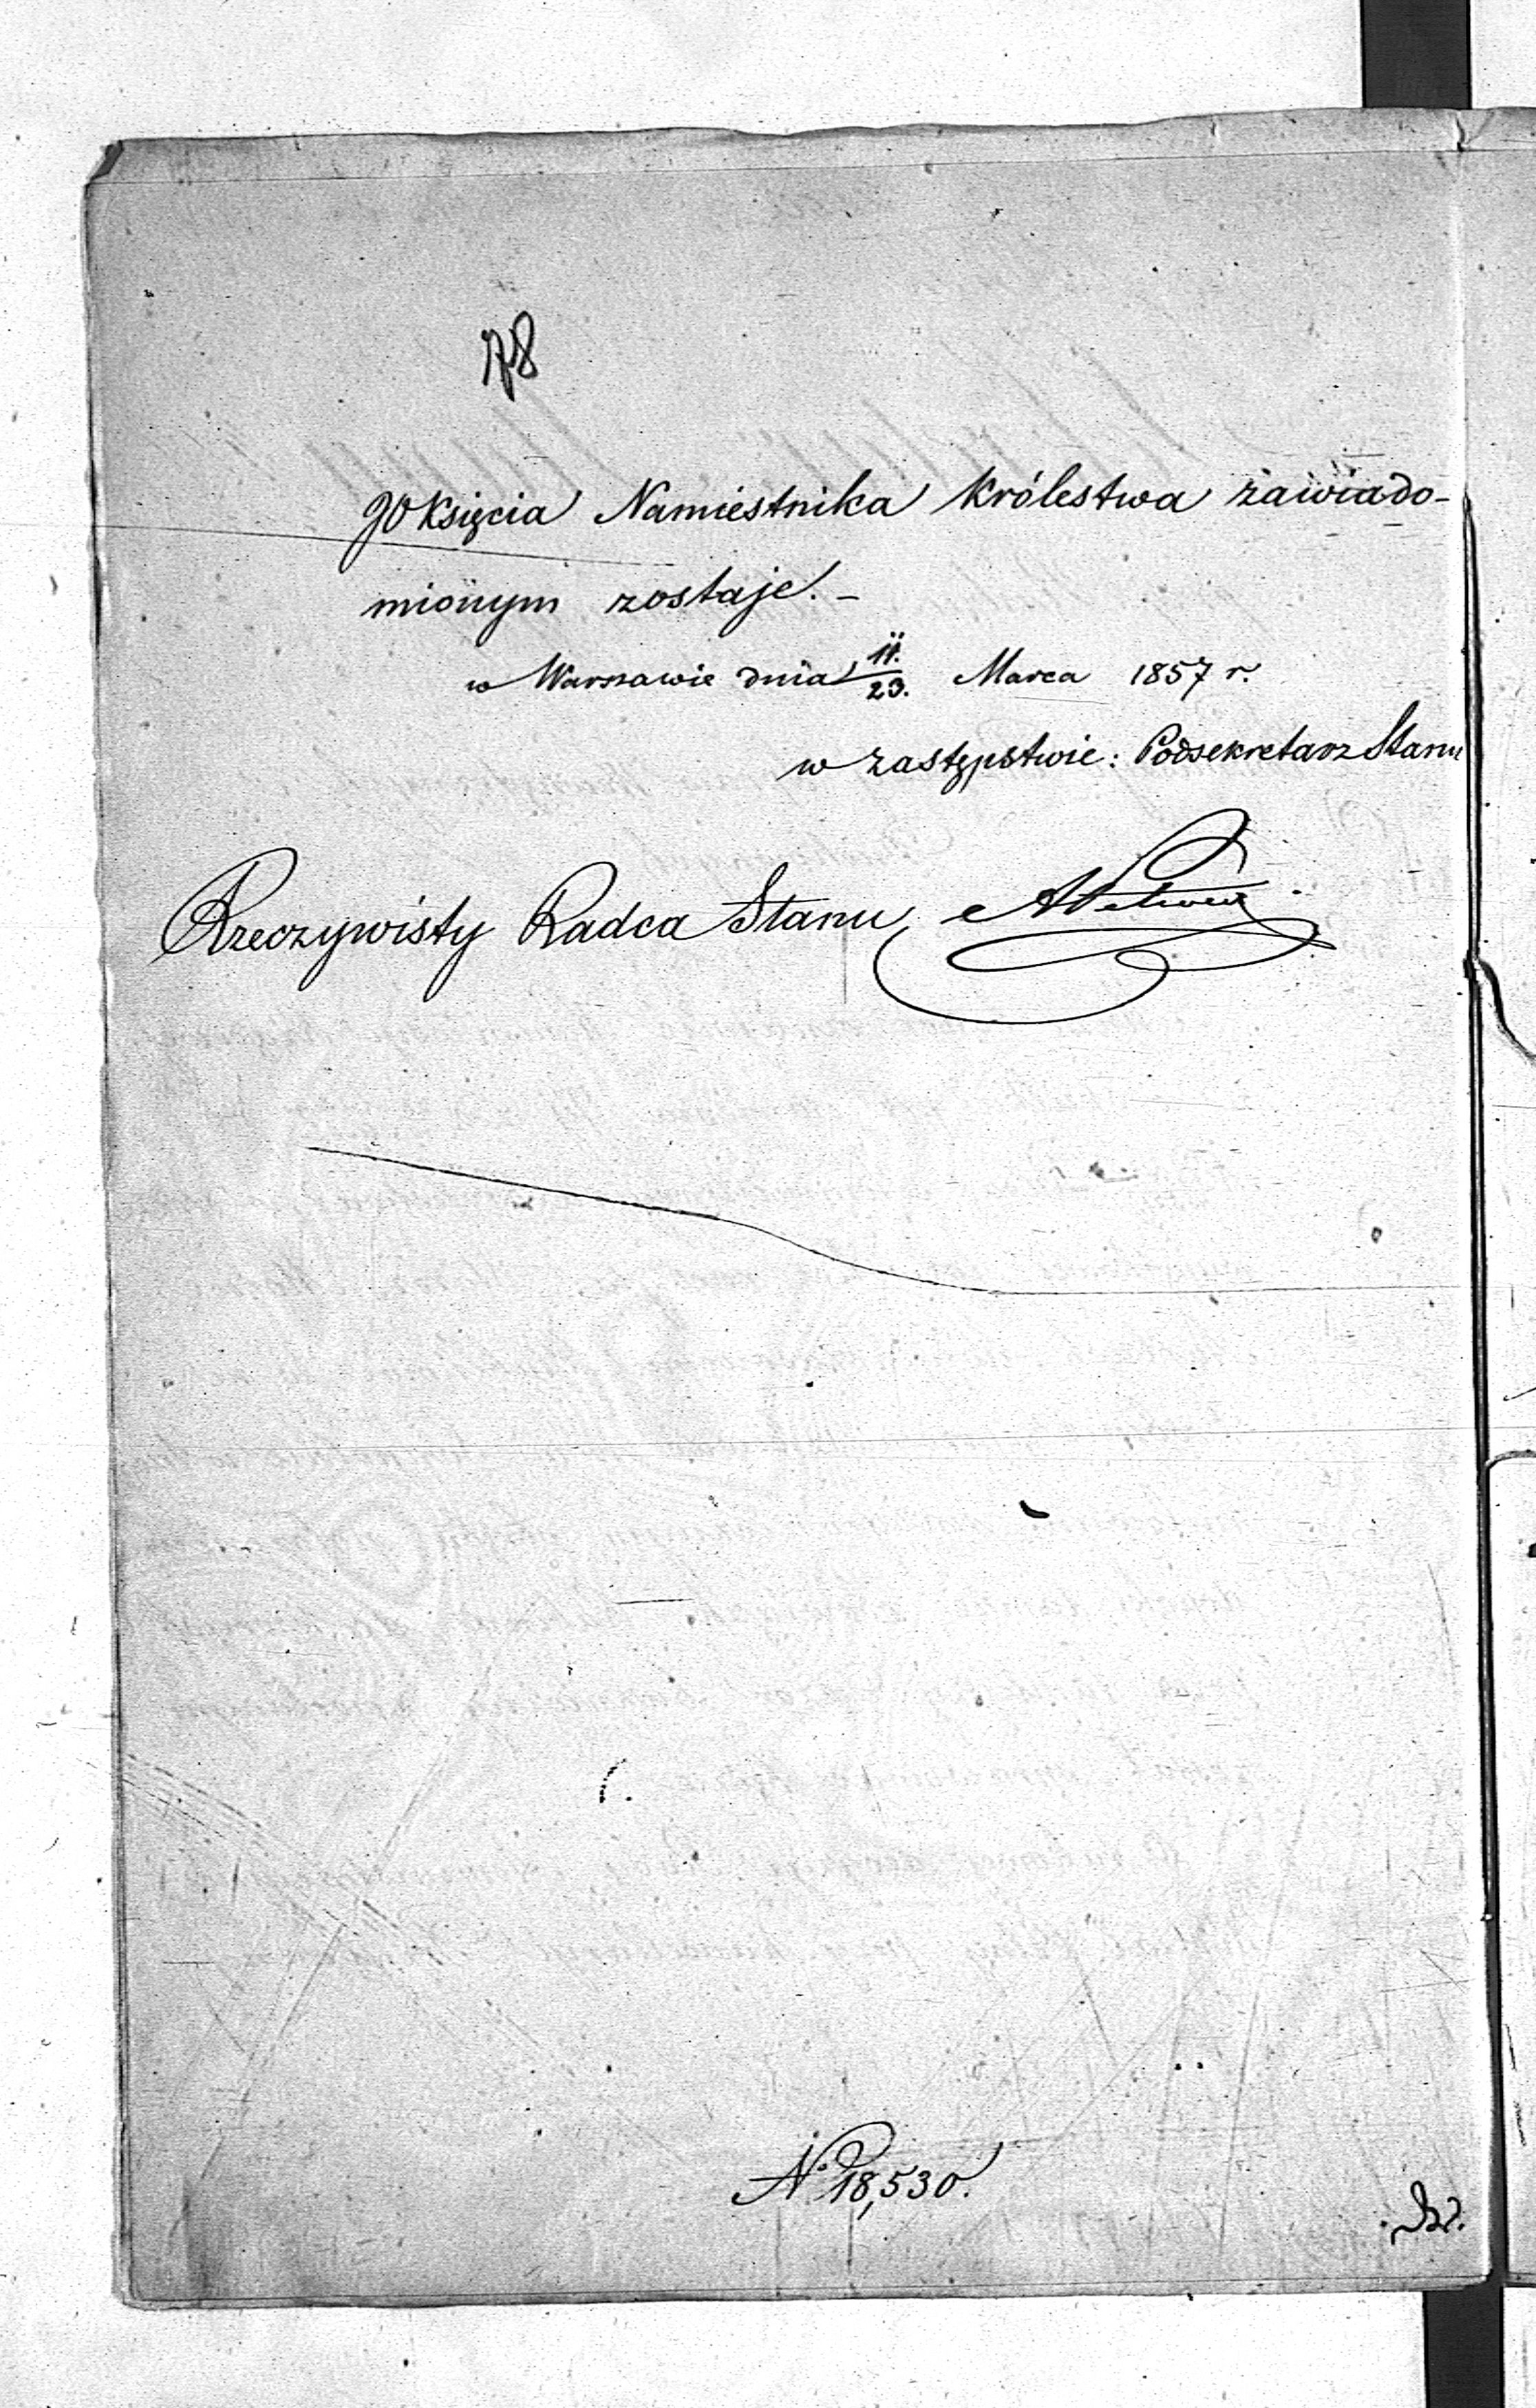 78
go Księcia Namiestnika Królestwa zawiado-
mionym zostaje. -
w Warszawie dnia 11./23. Marca 1857 r.
w zastępstwie: Podsekretarz Stanu
Rzeczywisty Radca Stanu
No 18,530.